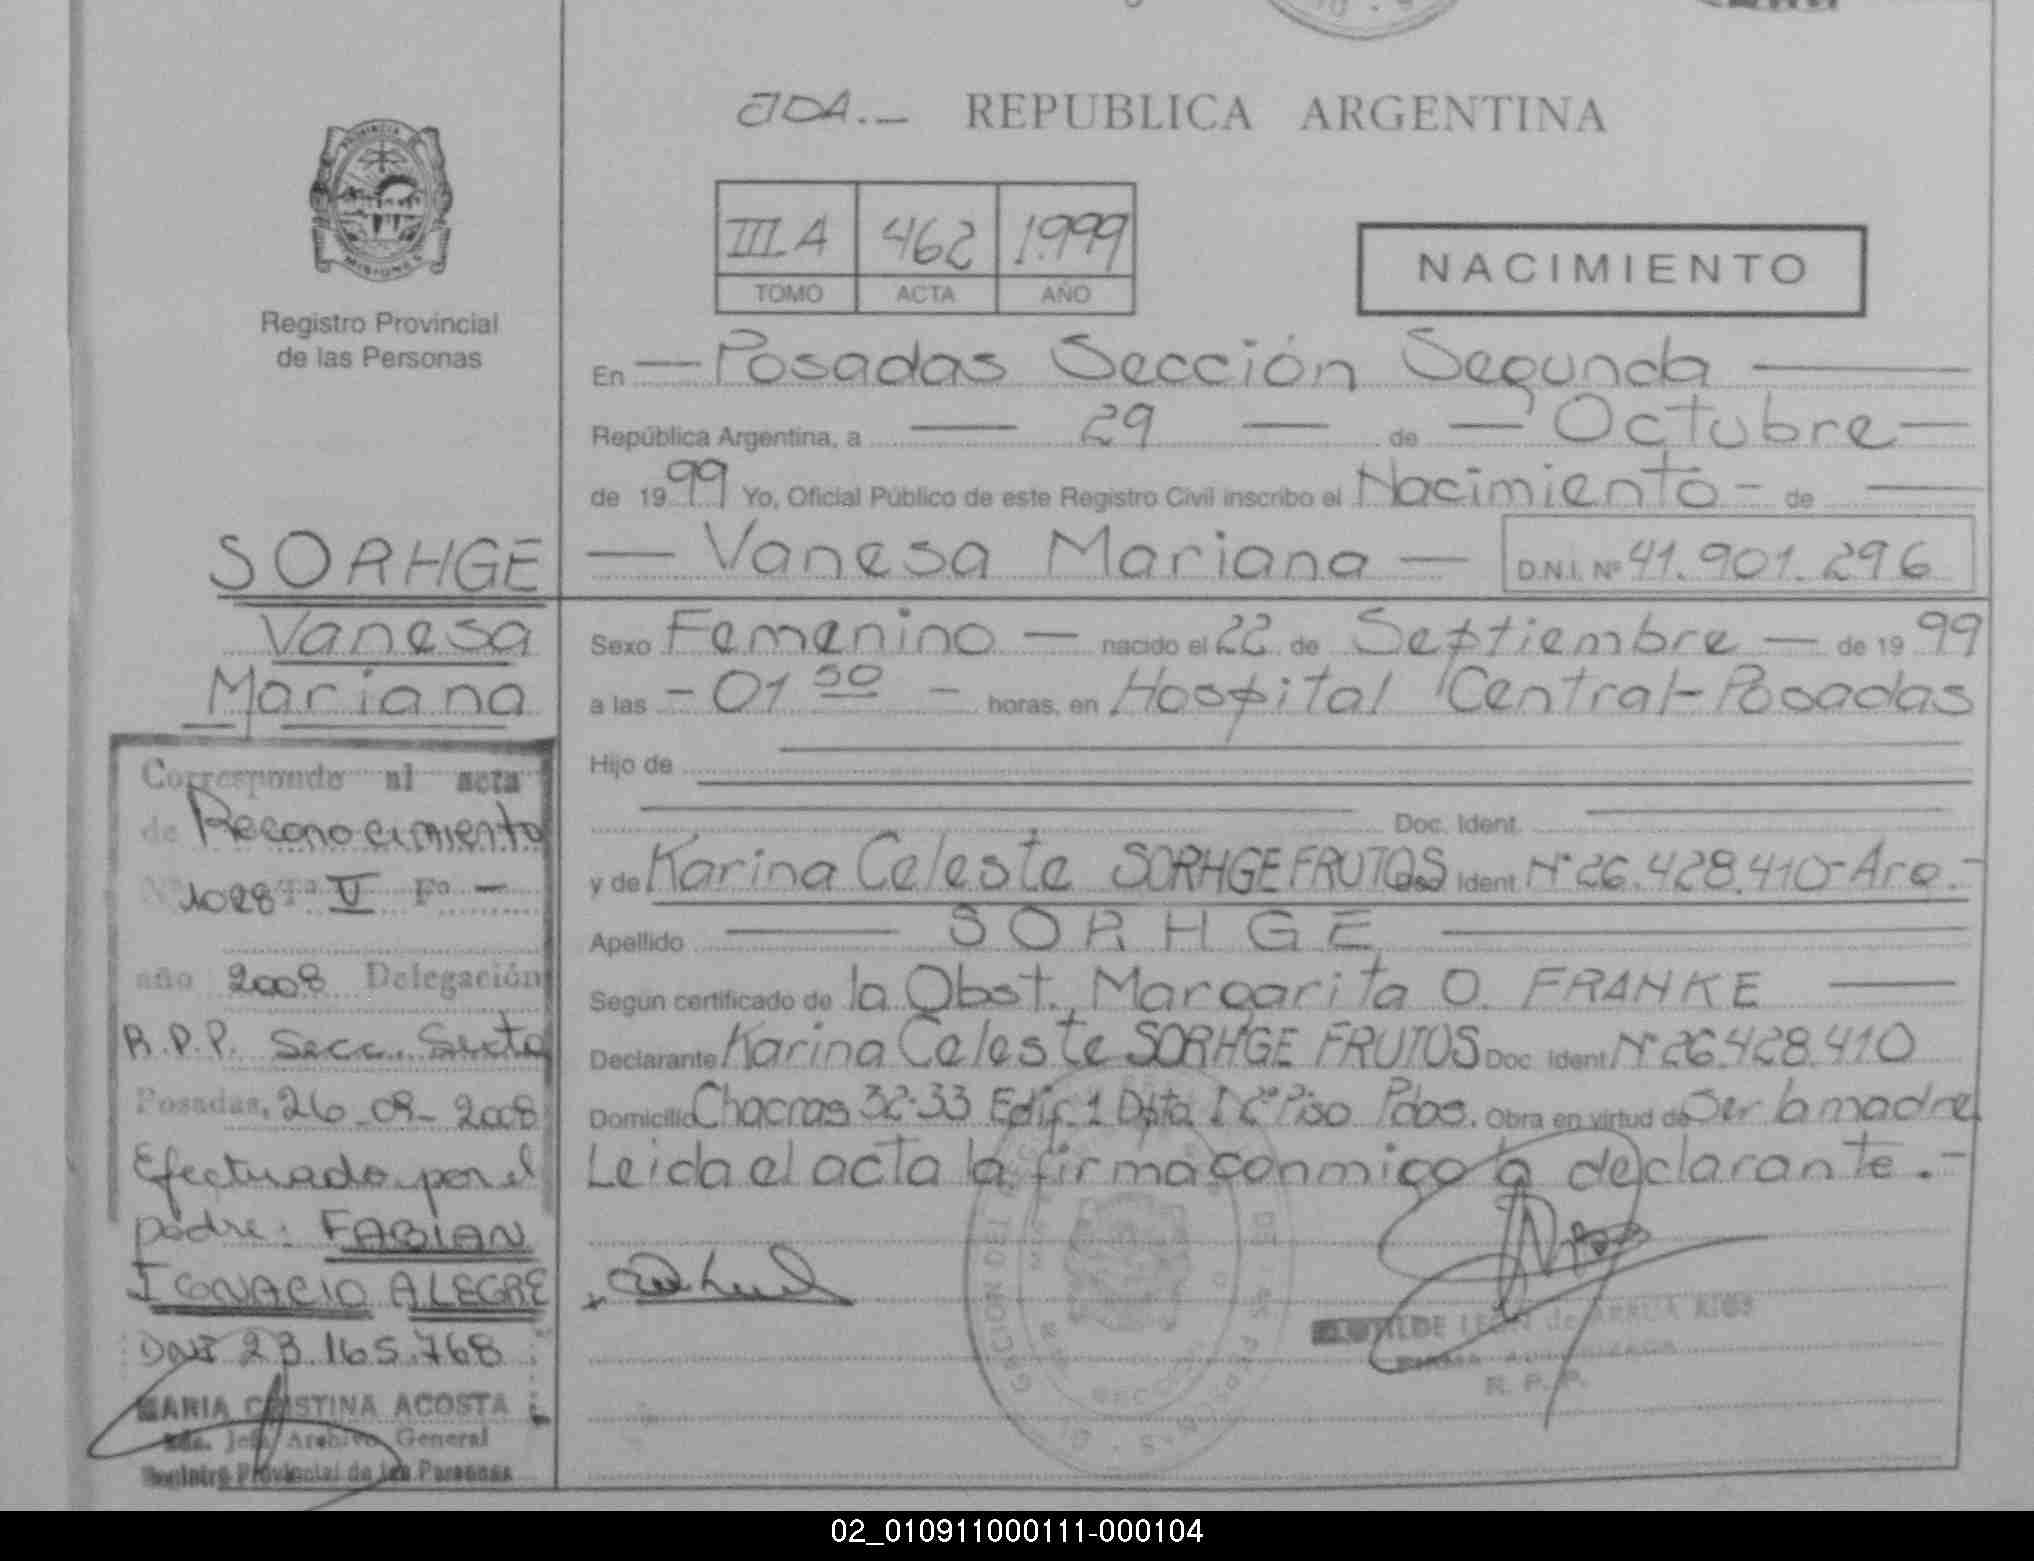 JDA.- REPUBLICA ARGENTINA
PROVINCIA
MISIONES
Registro Provincial
de las Personas
III A 462 1.999
TOMO ACTA AÑO
NACIMIENTO
En — Posadas Sección Segunda —
República Argentina, a — 29 — de — Octubre —
de 1999 Yo, Oficial Público de este Registro Civil inscribo el Nacimiento - de —
— Vanesa Mariana — D.N.I. Nº 41.901.296
Sexo Femenino — nacido el 22 de Septiembre — de 1999
a las - 01 50 - horas, en Hospital Central - Posadas
Hijo de
Doc. Ident.
y de Karina Celeste SORHGE FRUTOS Doc Ident Nº 26.428.410 - Arg.-
Apellido — SORHGE —
Según certificado de la Obst. Margarita O. FRANKE —
Declarante Karina Celeste SORHGE FRUTOS Doc Ident Nº 26.428.410
Domicilio Chacras 32-33 Edif. 1 Dpto I 2º Piso Pdas. Obra en virtud de Ser la madre
Leida el acta la firma conmigo la declarante.-
LEON de ARRUA RIOS
FIRMA AUTORIZADA
R. P. P.
SORHGE
Vanesa
Mariana
Corresponde al acta
de Reconocimiento
Nº 1028 Tº V Fº -
año 2008 Delegación
R.P.P. Secc. Sexta
Posadas, 26-08-2008
Efectuado por el
padre: FABIAN
IGNACIO ALEGRE
DNI 23.165.768
MARIA CRISTINA ACOSTA
Jefa Archivo General
Registro Provincial de las Personas
02_010911000111-000104